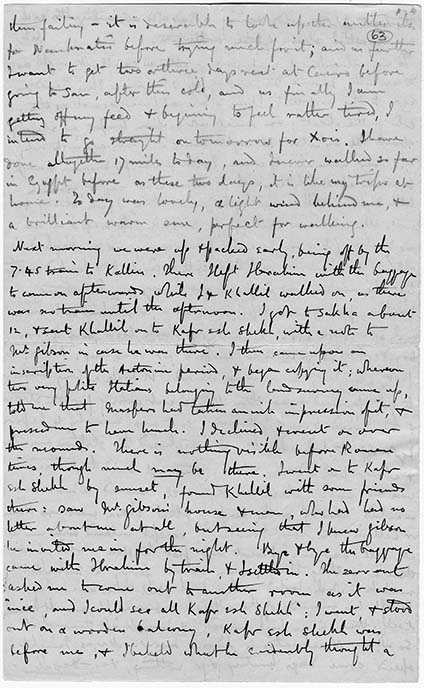 63
thus failing - it is desirable to look up the matter
for Naukratis before trying much for it; and as further
I want to get two or three days rest at Cairo before
going to San, after this cold, and as finally I am
getting off my feed & beginning to feel rather tired, I
intend to go straight on tomorrow for Xois. I have
done altogether 17 miles to day, and I never walked so far
in Egypt before as these two days, it is like my trips at
home. To day was lovely, a light wind behind me, &
a brilliant warm sun, perfect for walking.
Next morning we were up & packed early, being off by the
7.45 train to Kallin. There I left Ibrahim with the baggage
to come on afterwards, while I & Khallil walked on, as there
was no train until the afternoon. I got to Sakha about
12, & sent Khallil on to Kafr esh Shekh, with a note to
Mr. Gibson in case he was there. I then came upon an
inscription of the Antonine period, & began copying it; whereon
two very polite Italians belonging to the land survey came up,
told me that Maspero had taken an impression of it, &
pressed me to have lunch. I declined & went on over
the mounds. There is nothing visible before Roman
times, though much may be there. I went on to Kafr
esh Shekh by sunset, found Khallil with some friends
there: saw Mr. Gibson's house & man, who had had no
letter about me at all, but seeing that I knew Gibson
he invited me in for the night. Bye & bye the baggage
came with Ibrahim by train, & I settled in. The servant
asked me to come out to another room as it was
nice, and I could see all Kafr esh Shekh; I went, & stood
out on a wooden balcony, Kafr esh Shekh was
before me, & I beheld what he evidently thought a